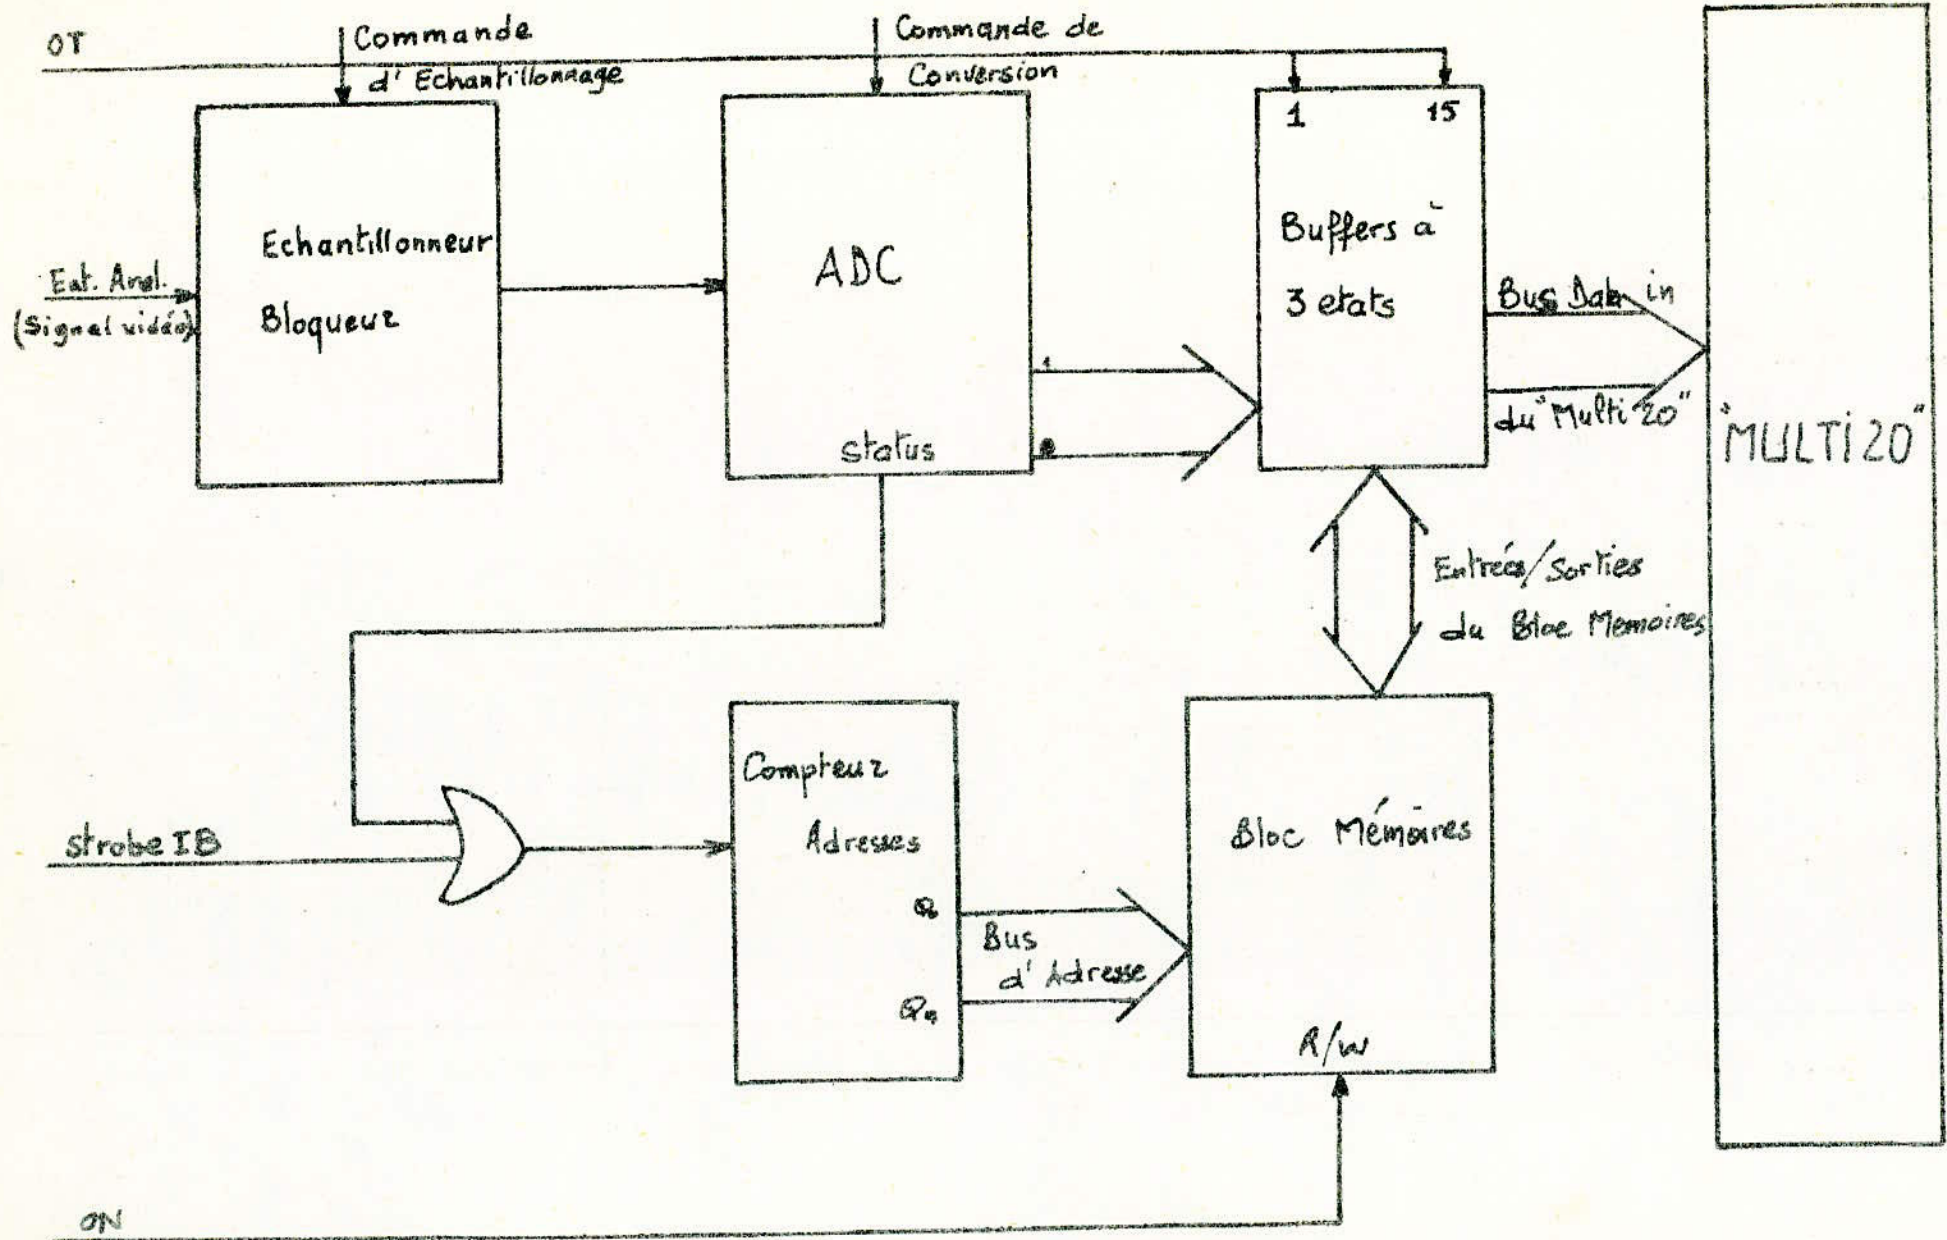 OT
Commande
d'Echantillonnage
Commande de
Conversion
1
15
Echantillonneur
Bloqueur
Ent. Anal.
(Signal vidéo)
ADC
status
1
Buffers à
3 etats
Bus Data in
du "Multi 20"
"MULTI 20"
Entrées/Sorties
du Bloc Memoires
strobe IB
Compteur
Adresses
Q
Bus
d'Adresse
Bloc Mémoires
R/W
ON